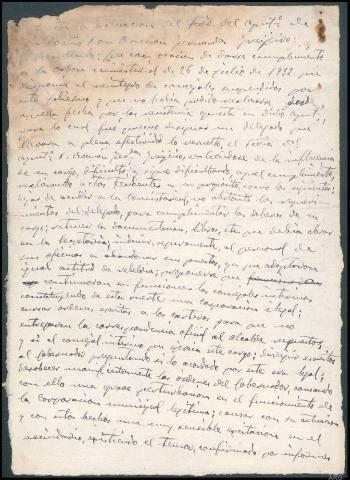 actuación del Srio. del Aynt. de
Don Ramón
que con ocasión de darse cumplimiento
la orden ministerial de 26 de julio de 1932 que
el reintegro de concejales suspendidos por
este gobierno y que no había podido realizarse desde
aquella fecha por la resistencia puesta en dicho Aynt.,
para lo cual fue preciso designar un delegado que
llevara a plena efectividad lo resuelto, el Srio. del
Aynt. D. Ramón, valiéndose de la influencia
de su cargo, dificultó y sigue dificultando, aquel cumplimiento,
realizando actos tendentes a su propósito, como los siguientes:
dejar de acudir a la Consistorial, no obstante los requeri-
mientos del delegado, para cumplimentar los deberes de su
cargo; retener la documentación, libros, etc. que debía obrar
en la Secretaría; inducir, igualmente, al personal de
sus oficinas a abandonar sus puestos, ya que adoptaron
igual actitud de rebeldía; proponerse que
continuaran en funciones los concejales interinos
constituyendo de esta suerte una corporación ilegal;
cursar órdenes escritas a los carteros para que no
entregaran la correspondencia oficial al alcalde repuesto,
y sí al concejal interino que ejercía este cargo; dirigir escritos
al gobernador preguntando si lo acordado por este era legal;
desobedecer manifiestamente las órdenes del gobernador, causando
con ello una grave perturbación en el funcionamiento de
la corporación municipal legítima; causar con su actuación
y con estos hechos una muy sensible excitación en el
vecindario, existiendo el temor, confirmado por informes